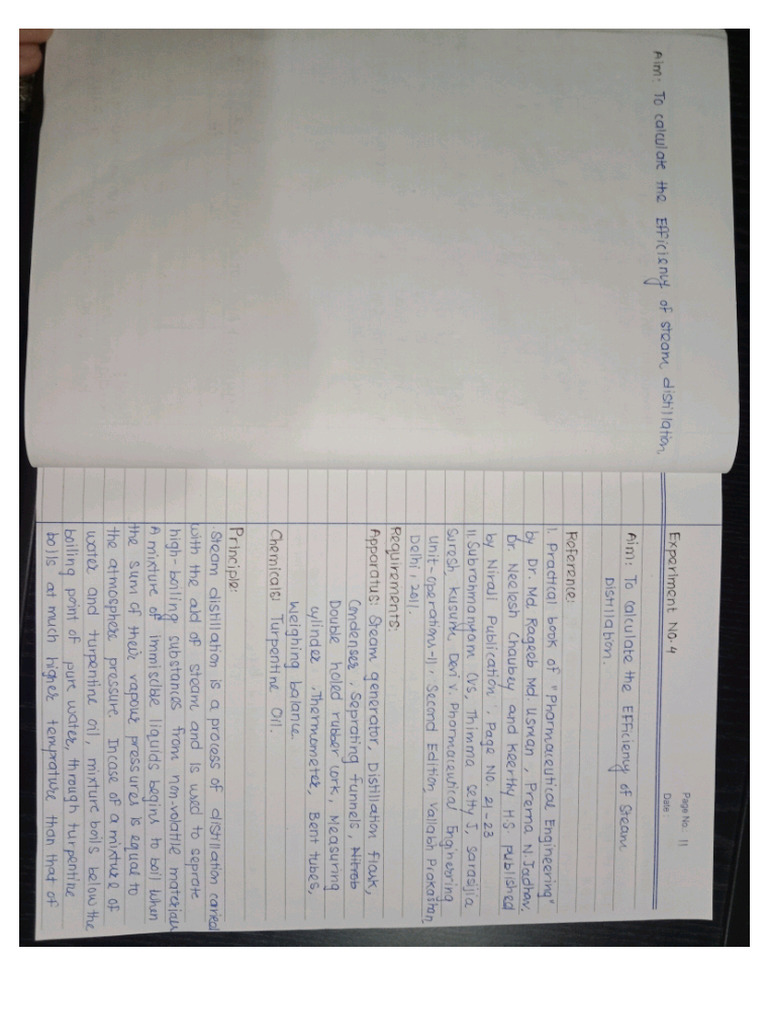 Aim: To calculate the Efficiency of steam distillation
Page No. 11
Date:
Experiment No. 4
Aim: To calculate the Efficiency of Steam
Distillation.
Reference:
1. Practical book of "Pharmaceutical Engineering"
by Dr. Md. Rageeb Md. Usman, Prerna N. Jadhav,
Dr. Neelesh Chaubey and Keerthy H.S. published
by Nirali Publication', Page No. 21-23
11. Subranmanyam CVS, Thimma setty J, Sarasijia
Suresh, kusum Devi V. Pharmaceutical Engineering
Unit-operations-11, Second Edition, Vallabh Prakashan
Delhi, 2011.
Requirements:
Apparatus: Steam generator, Distillation flask,
Condenses, Seprating funnels,
Double holed rubber cork, Measuring
cylinder, Thermometer, Bent tubes,
Weighing balance.
Chemicals: Turpentine Oil.
Principle:
Steam distillation is a process of distillation carried
with the aid of steam and is used to seprate
high-boiling substances from non-volatile materials
A mixture of immiscible liquids begins to boil when
the sum of their vapour pressures is equal to
the atmosphere pressure. Incase of a mixture of
water and turpentine oil, mixture boils below the
boiling point of pure water, through turpentine
boils at much higher temprature than that of